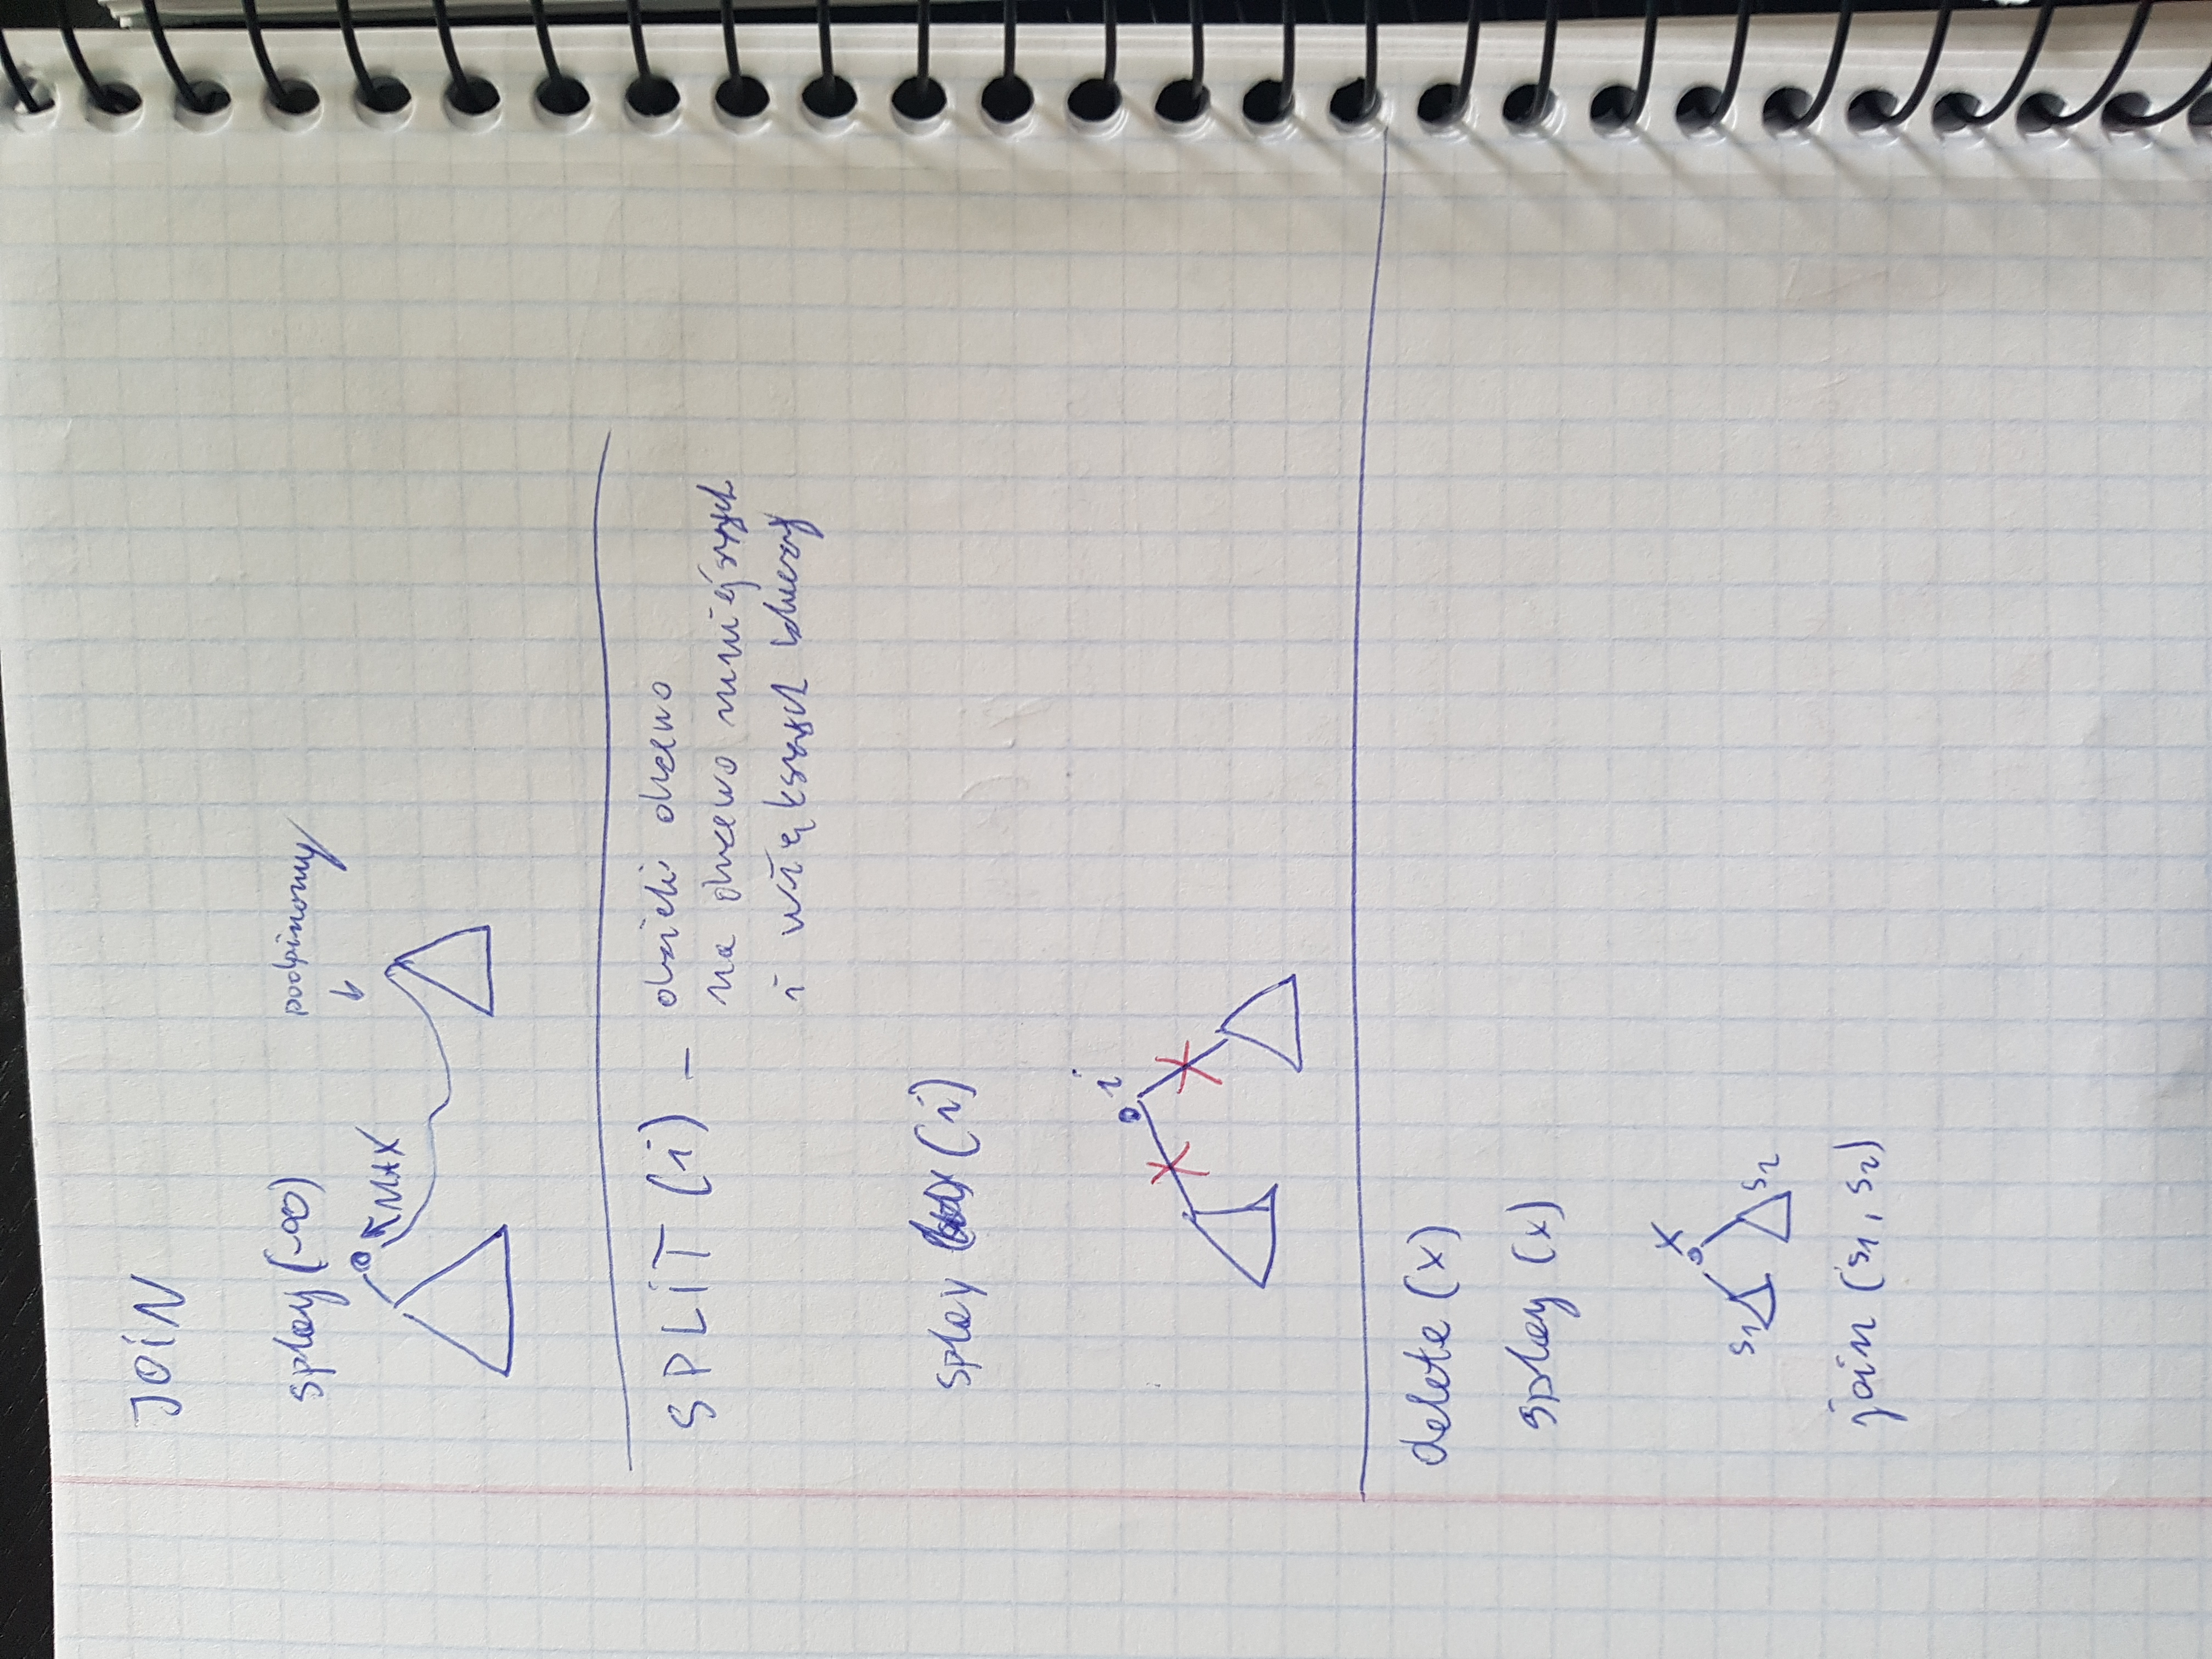 JOIN
splay (-∞)
podpinamy
MAX
SPLIT (i) - dzieli drzewo
na drzewo mniejszych
i większych kluczy
splay (i)
i
delete (x)
splay (x)
x
s1 s2
join (s1, s2)